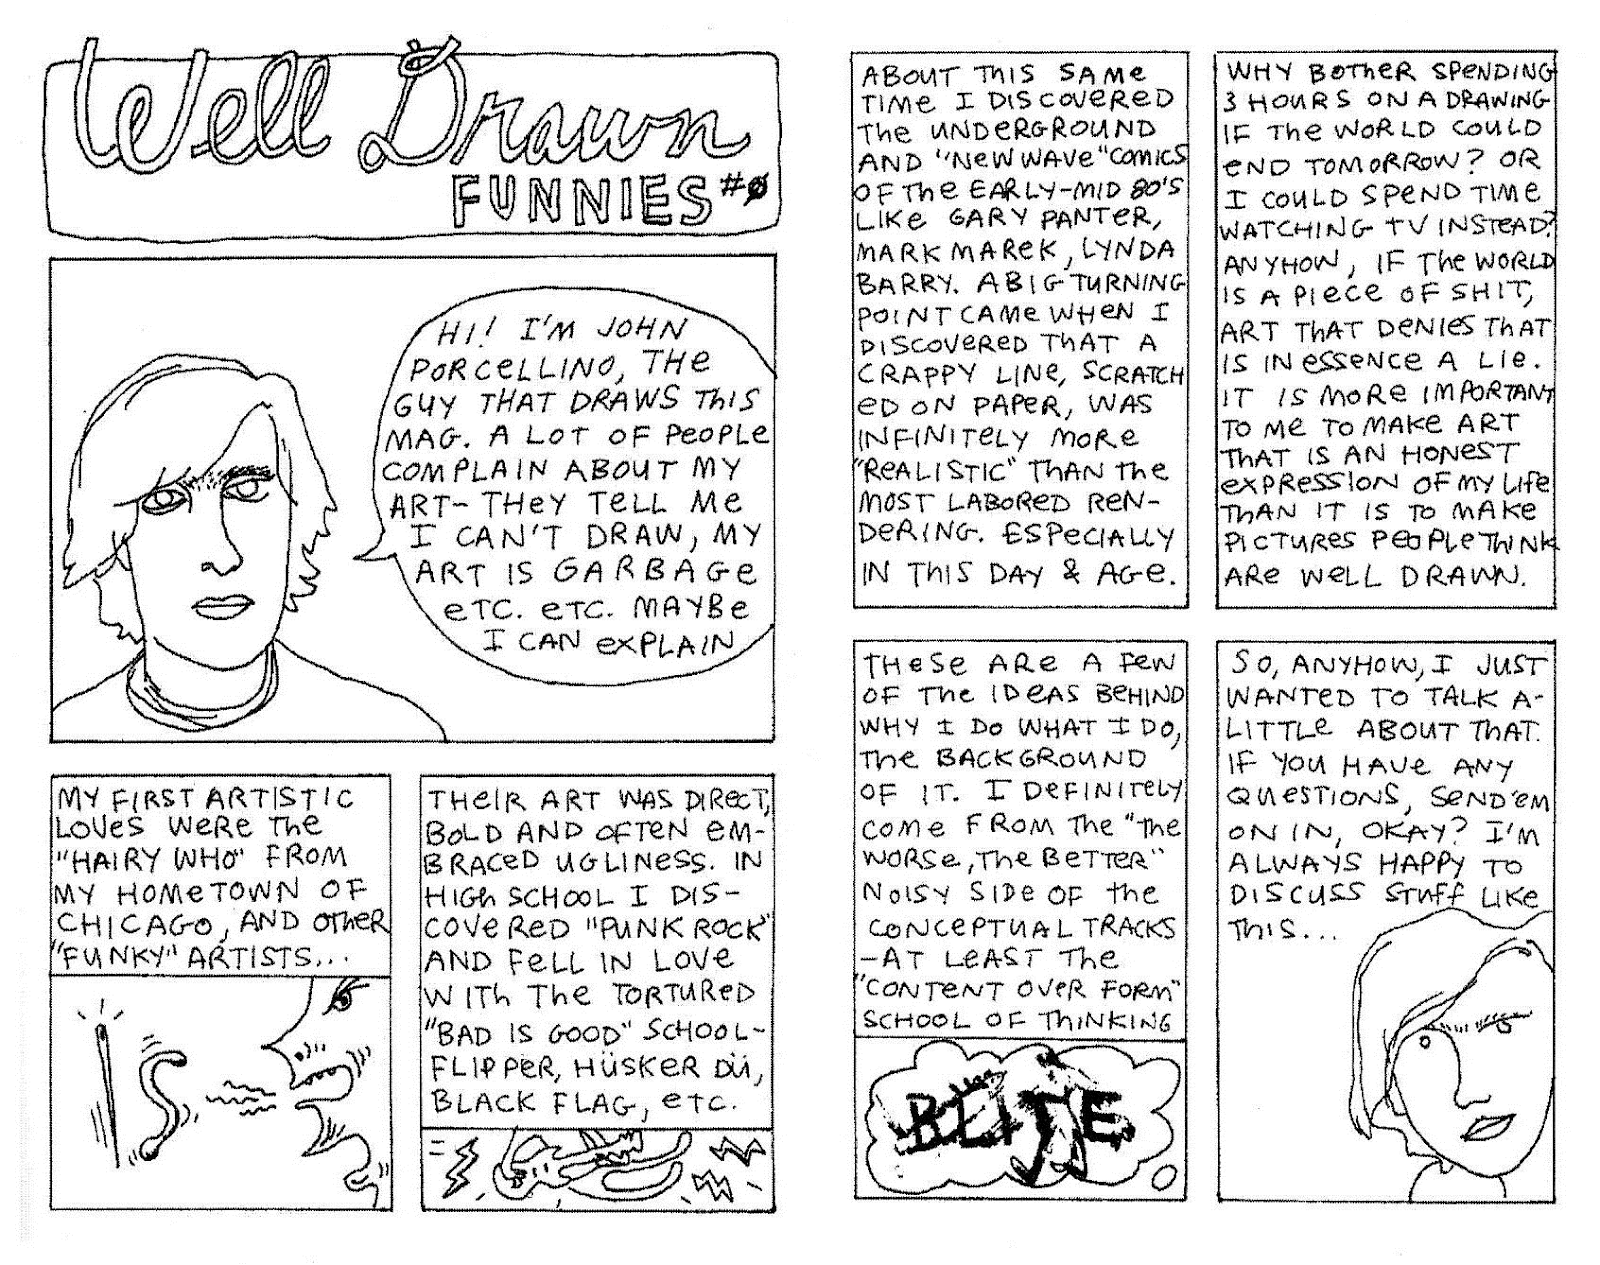 Well Drawn
FUNNIES #Ø
HI! I'M JOHN
PORCELLINO, THE
GUY THAT DRAWS THIS
MAG. A LOT OF PEOPLE
COMPLAIN ABOUT MY
ART- THEY TELL ME
I CAN'T DRAW, MY
ART IS GARBAGE
ETC. ETC. MAYBE
I CAN EXPLAIN
MY FIRST ARTISTIC
LOVES WERE THE
"HAIRY WHO" FROM
MY HOMETOWN OF
CHICAGO, AND OTHER
"FUNKY" ARTISTS...
THEIR ART WAS DIRECT,
BOLD AND OFTEN EM-
BRACED UGLINESS. IN
HIGH SCHOOL I DIS-
COVERED "PUNK ROCK"
AND FELL IN LOVE
WITH THE TORTURED
"BAD IS GOOD" SCHOOL-
FLIPPER, HÜSKER DÜ,
BLACK FLAG, ETC.
ABOUT THIS SAME
TIME I DISCOVERED
THE UNDERGROUND
AND "NEW WAVE" COMICS
OF THE EARLY-MID 80'S
LIKE GARY PANTER,
MARK MAREK, LYNDA
BARRY. A BIG TURNING
POINT CAME WHEN I
DISCOVERED THAT A
CRAPPY LINE, SCRATCH
ED ON PAPER, WAS
INFINITELY MORE
"REALISTIC" THAN THE
MOST LABORED REN-
DERING. ESPECIALLY
IN THIS DAY & AGE.
WHY BOTHER SPENDING
3 HOURS ON A DRAWING
IF THE WORLD COULD
END TOMORROW? OR
I COULD SPEND TIME
WATCHING TV INSTEAD?
ANYHOW, IF THE WORLD
IS A PIECE OF SHIT,
ART THAT DENIES THAT
IS IN ESSENCE A LIE.
IT IS MORE IMPORTANT
TO ME TO MAKE ART
THAT IS AN HONEST
EXPRESSION OF MY LIFE
THAN IT IS TO MAKE
PICTURES PEOPLE THINK
ARE WELL DRAWN.
THESE ARE A FEW
OF THE IDEAS BEHIND
WHY I DO WHAT I DO,
THE BACKGROUND
OF IT. I DEFINITELY
COME FROM THE "THE
WORSE, THE BETTER"
NOISY SIDE OF THE
CONCEPTUAL TRACKS
-AT LEAST THE
"CONTENT OVER FORM"
SCHOOL OF THINKING
SO, ANYHOW, I JUST
WANTED TO TALK A-
LITTLE ABOUT THAT.
IF YOU HAVE ANY
QUESTIONS, SEND 'EM
ON IN, OKAY? I'M
ALWAYS HAPPY TO
DISCUSS STUFF LIKE
THIS...